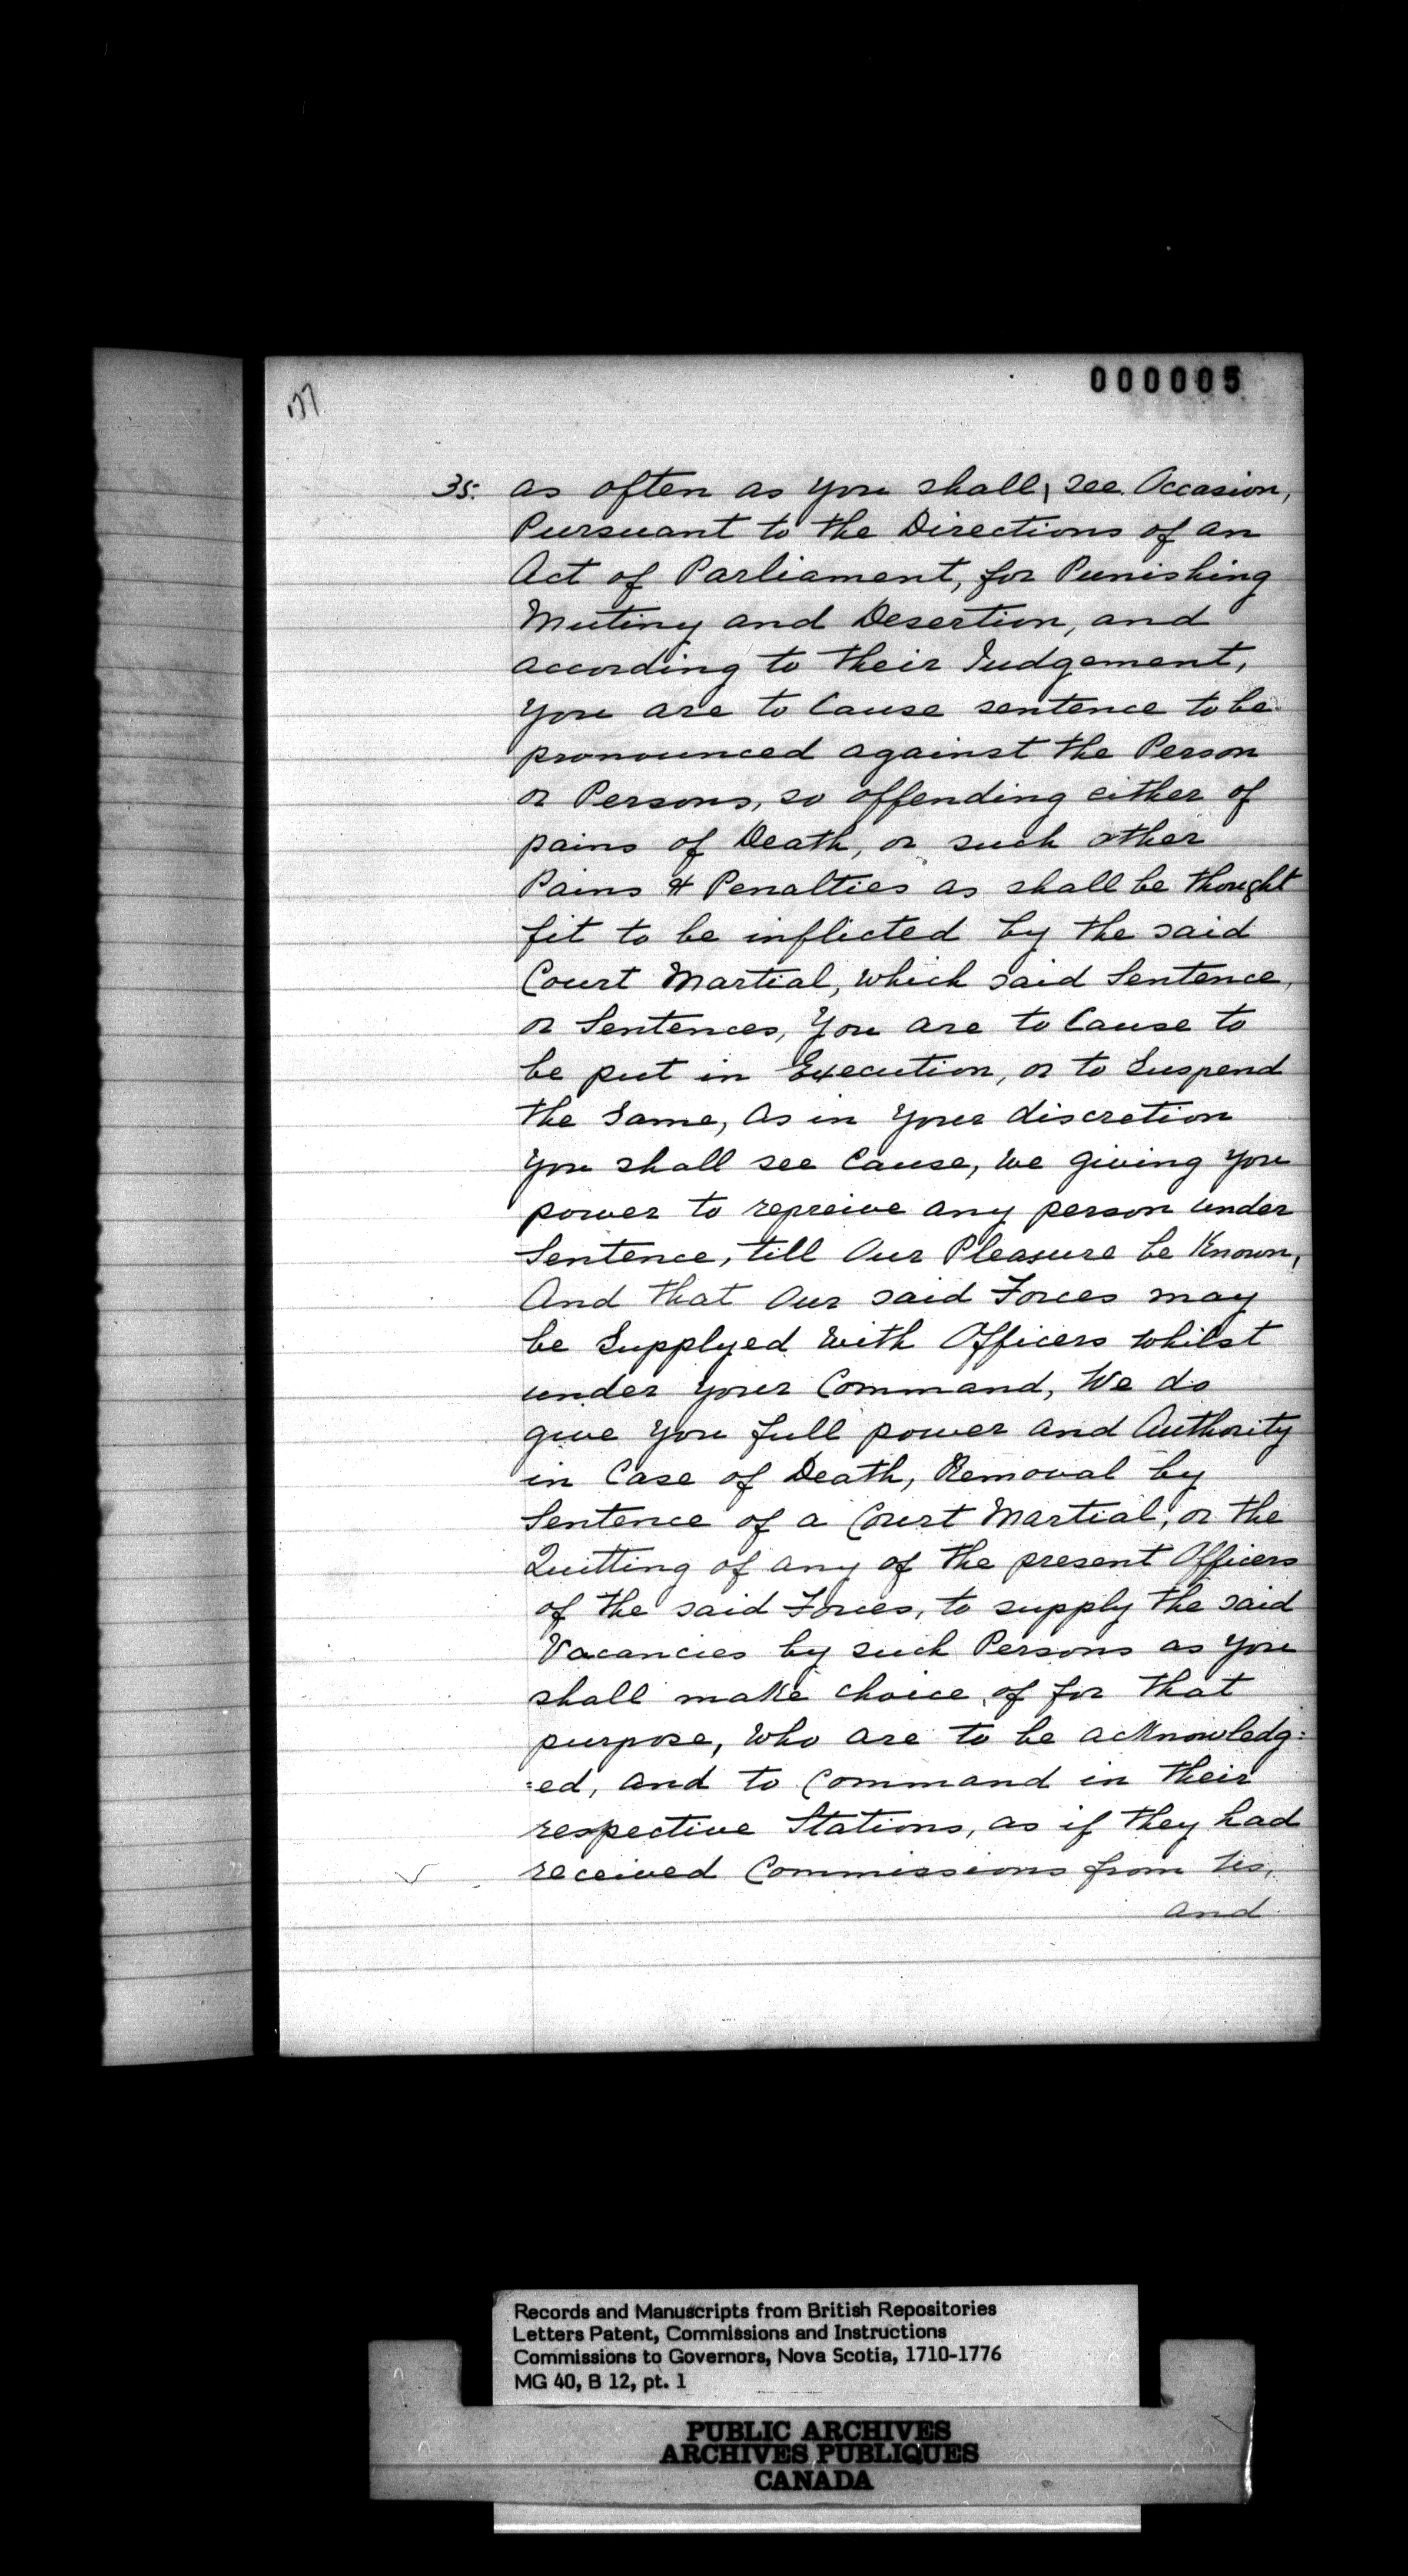 000005
35. as often as you shall, see Occasion,
Pursuant to the Directions of an
Act of Parliament, for Punishing
Mutiny and Desertion, and
according to their Judgement,
you are to Cause sentence to be
pronounced against the Person
or Persons, so offending either of
pains of Death, or such other
Pains & Penalties as shall be thought
fit to be inflicted by the said
Court Martial, which said Sentence,
or Sentences, You are to Cause to
be put in Execution, or to Suspend
the Same, as in Your discretion
you shall see Cause, we giving you
power to repreive any person under
Sentence, till Our Pleasure be Known,
And that Our said Forces may
be Supplyed with Officers whilst
under Your Command, We do
give You full power and Authority
in Case of Death, Removal by
Sentence of a Court Martial, or the
Quitting of any of the present Officers
of the said Forces, to supply the said
Vacancies by such Persons as You
shall make choice of for that
purpose, who are to be acknowledg:
:ed, and to Command in their
respective Stations, as if they had
received Commissions from Us,
and
Records and Manuscripts from British Repositories
Letters Patent, Commissions and Instructions
Commissions to Governors, Nova Scotia, 1710-1776
MG 40, B 12, pt. 1
PUBLIC ARCHIVES
ARCHIVES PUBLIQUES
CANADA